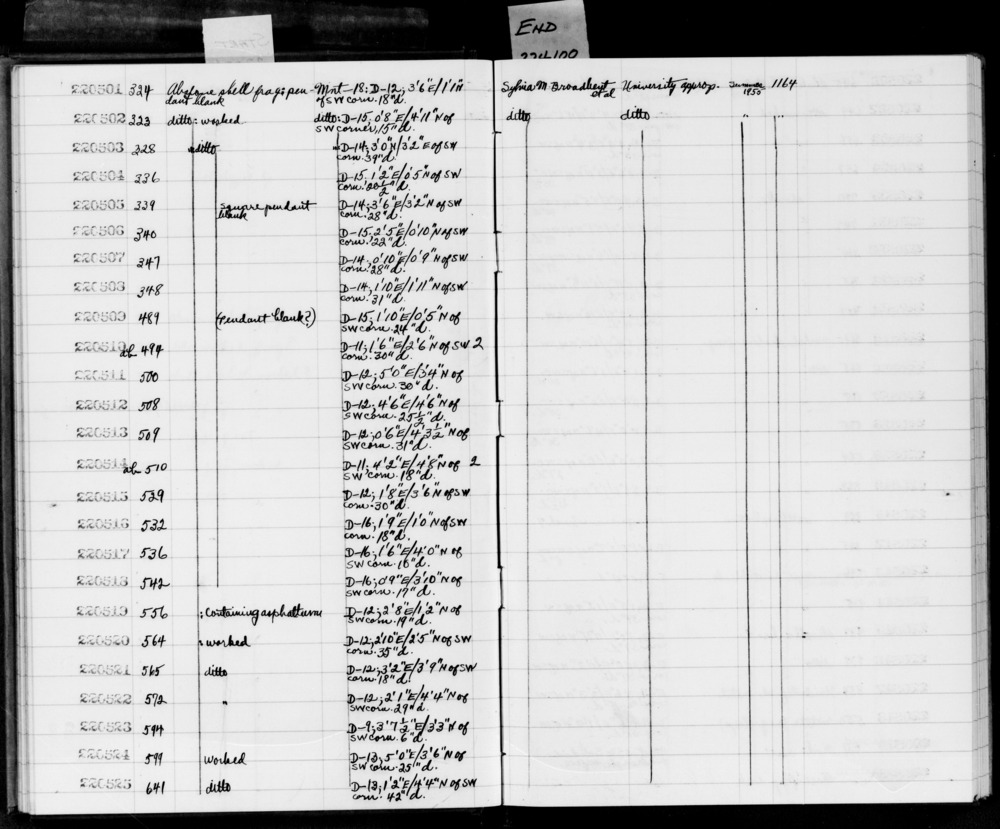 END
220501 324 Abalone shell frag; pen- Mnt-18: D-12; 3'6"E/1'1"N Sylvia M Broadbent University approp. Summer 1164
dant blank of SW corn. 18"d. et al 1950
220502 323 ditto: worked ditto: D-15, 0'8"E/4'11"N of ditto ditto " "
SW corner, 15"d.
220503 328 " ditto " D-14; 3'0"N/3'2"E of SW
corn. 39"d.
220504 336 D-15, 1'2"E/0'5"N of SW
corn. "d.
220505 339 square pendant D-14; 3'6"E/3'2"N of SW
blank corn. 28"d.
220506 340 D-15; 2'5"E/0'10"N of SW
corn. 22"d.
220507 347 D-14; 0'10"E/0'9"N of SW
corn. 28"d.
220508 348 D-14; 1'10"E/1'11"N of SW
corn. 31"d.
220509 489 (pendant blank?) D-15; 1'10"E/0'5"N of
SW corn. 24"d.
220510 ab 494 D-11; 1'6"E/2'6"N of SW 2
corn. 30"d.
220511 500 D-12; 5'0"E/3'4"N of
SW corn. 30"d.
220512 508 D-12; 4'6"E/4'6"N of
SW corn. 25½"d.
220513 509 D-12; 0'6"E/4'3½"N of
SW corn. 31"d.
220514 ab 510 D-11; 4'2"E/4'8"N of 2
SW corn. 18"d.
220515 529 D-12; 1'8"E/3'6"N of SW
corn. 30"d.
220516 532 D-16; 1'9"E/1'0"N of SW
corn. 18"d.
220517 536 D-16; 1'6"E/4'0"N of
SW corn. 16"d.
220518 542 D-16; 0'9"E/3'10"N of
SW corn. 17"d.
220519 556 : Containing asphaltum D-12; 2'8"E/1'2"N of
SW corn. 19"d.
220520 564 : worked D-12; 2'10"E/2'5"N of SW
corn. 35"d.
220521 565 ditto D-12; 3'2"E/3'9"N of SW
corn. 18"d.
220522 572 " D-12; 2'1"E/4'4"N of
SW corn. 29"d.
220523 594 D-9; 3'7½"E/3'3"N of
SW corn. 6"d.
220524 599 worked D-13; 5'0"E/3'6"N of
SW corn. 25"d.
220525 641 ditto D-13; 1'2"E/4'4"N of SW
corn. 42"d.